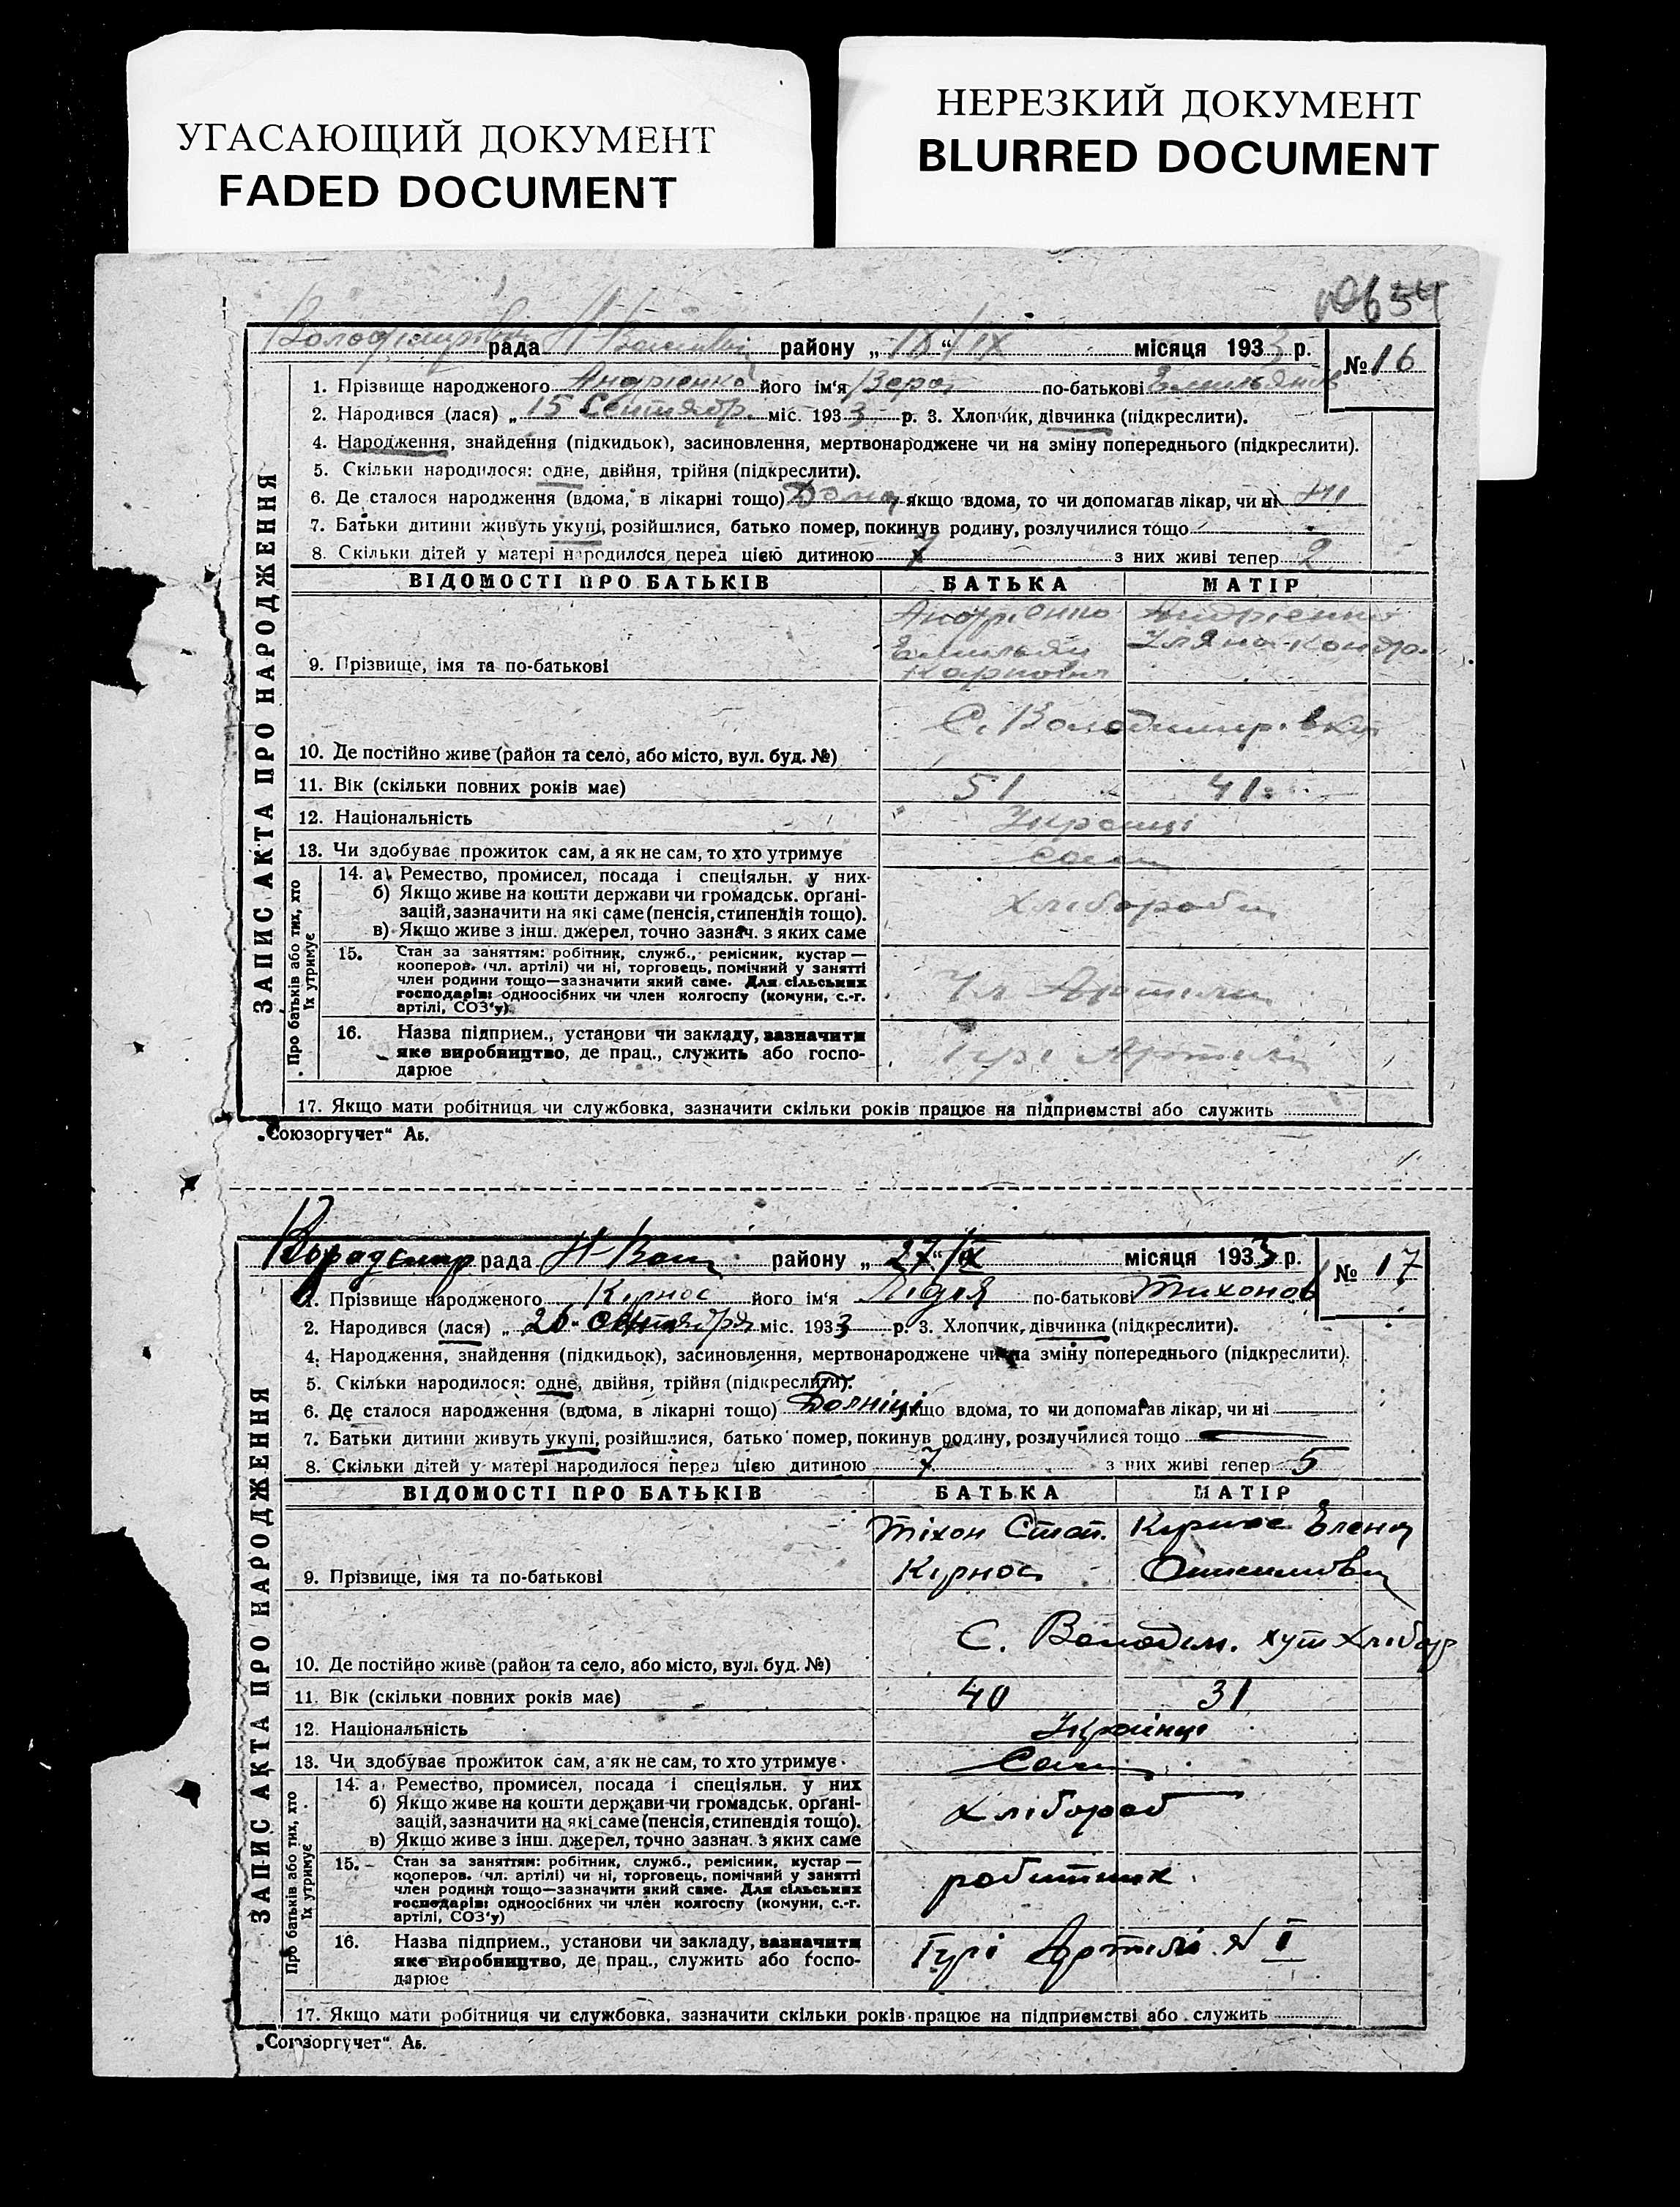 УГАСАЮЩИЙ ДОКУМЕНТ
FADED DOCUMENT
НЕРЕЗКИЙ ДОКУМЕНТ
BLURRED DOCUMENT
654
рада Н районy „ 18 “ IX місяця 1933 р.
№ 16
ЗАПИС АКТА ПРО НАРОДЖЕННЯ
1. Прізвище народженого Андрієнко його ім‘я Вера по-батькові Емильянов
2. Народився (лася) „ 15 Сентябр. міс. 1933 р. 3. Хлопчик, дівчинка (підкреслити).
4. Народження, знайдення (підкидьок), засиновлення, мертвонароджене чи на зміну попереднього (підкреслити).
5. Скільки народилося: одне, двійня, трійня (підкреслити).
6. Де сталося народження (вдома, в лікарні тощо) Дома якщо вдома, то чи допомагав лікар, чи ні ні
7. Батьки дитини живуть укупі, розійшлися, батько помер, покинув родину, розлучилися тощо
8. Скільки дітей у матері народилося перед цією дитиною 7 з них живі тепер 2
ВІДОМОСТІ ПРО БАТЬКІВ БАТЬКА МАТІР
9. Прізвище, імя та по-батькові
Андрієнко Емильян Карпович
Андрієнко Уляна Кондра.
10. Де постійно живе (район та село, або місто, вул. буд. №)
С. Володимирівка
11. Вік (скільки повних років має) 51 41
12. Національність Україці
13. Чи здобуває прожиток сам, а як не сам, то хто утримує сами
Про батьків або тих, хто їх утримує
14. а) Ремество, промисел, посада і спеціяльн. у них
б) Якщо живе на кошти держави чи громадськ. органі-
зацій, зазначити на які саме (пенсія, стипендія тощо).
в) Якщо живе з інш. джерел, точно зазнач. з яких саме
Хлібороби
15. Стан за заняттям: робітник, служб., ремісник, кустар —
кооперов. (чл. артілі) чи ні, торговець, помічний у занятті
член родини тощо—зазначити який саме. Для сільських
господарів: одноосібних чи член колгоспу (комуни, с.-г.
артілі, СОЗ‘у)
Чл Артели
16. Назва підприєм., установи чи закладу, зазначити
яке виробництво, де прац., служить або госпо-
дарює
Артели
17. Якщо мати робітниця чи службовка, зазначити скільки років працює на підприємстві або служить
„Союзоргучет“ Аб.
рада Н Вас районy „ 27 “ IX місяця 1933 р.
№ 17
ЗАПИС АКТА ПРО НАРОДЖЕННЯ
1. Прізвище народженого Кірнос його ім‘я Лідія по-батькові Тихонов
2. Народився (лася) „ 26 Сентября міс. 1933 р. 3. Хлопчик, дівчинка (підкреслити).
4. Народження, знайдення (підкидьок), засиновлення, мертвонароджене чи на зміну попереднього (підкреслити).
5. Скільки народилося: одне, двійня, трійня (підкреслити).
6. Де сталося народження (вдома, в лікарні тощо) Болніці якщо вдома, то чи допомагав лікар, чи ні
7. Батьки дитини живуть укупі, розійшлися, батько помер, покинув родину, розлучилися тощо
8. Скільки дітей у матері народилося перед цією дитиною 7 з них живі тепер 5
ВІДОМОСТІ ПРО БАТЬКІВ БАТЬКА МАТІР
9. Прізвище, імя та по-батькові
Тіхон Степ. Кірнос
Кірнос Елена
10. Де постійно живе (район та село, або місто, вул. буд. №)
С. Володим. хут Хлібор
11. Вік (скільки повних років має) 40 31
12. Національність Українці
13. Чи здобуває прожиток сам, а як не сам, то хто утримує Сам
Про батьків або тих, хто їх утримує
14. а) Ремество, промисел, посада і спеціяльн. у них
б) Якщо живе на кошти держави чи громадськ. органі-
зацій, зазначити на які саме (пенсія, стипендія тощо).
в) Якщо живе з інш. джерел, точно зазнач. з яких саме
Хлібороб
15. Стан за заняттям: робітник, служб., ремісник, кустар —
кооперов. (чл. артілі) чи ні, торговець, помічний у занятті
член родини тощо—зазначити який саме. Для сільських
господарів: одноосібних чи член колгоспу (комуни, с.-г.
артілі, СОЗ‘у)
робитник
16. Назва підприєм., установи чи закладу, зазначити
яке виробництво, де прац., служить або госпо-
дарює
Гурі Артилі № I
17. Якщо мати робітниця чи службовка, зазначити скільки років працює на підприємстві або служить
„Союзоргучет“ Аб.